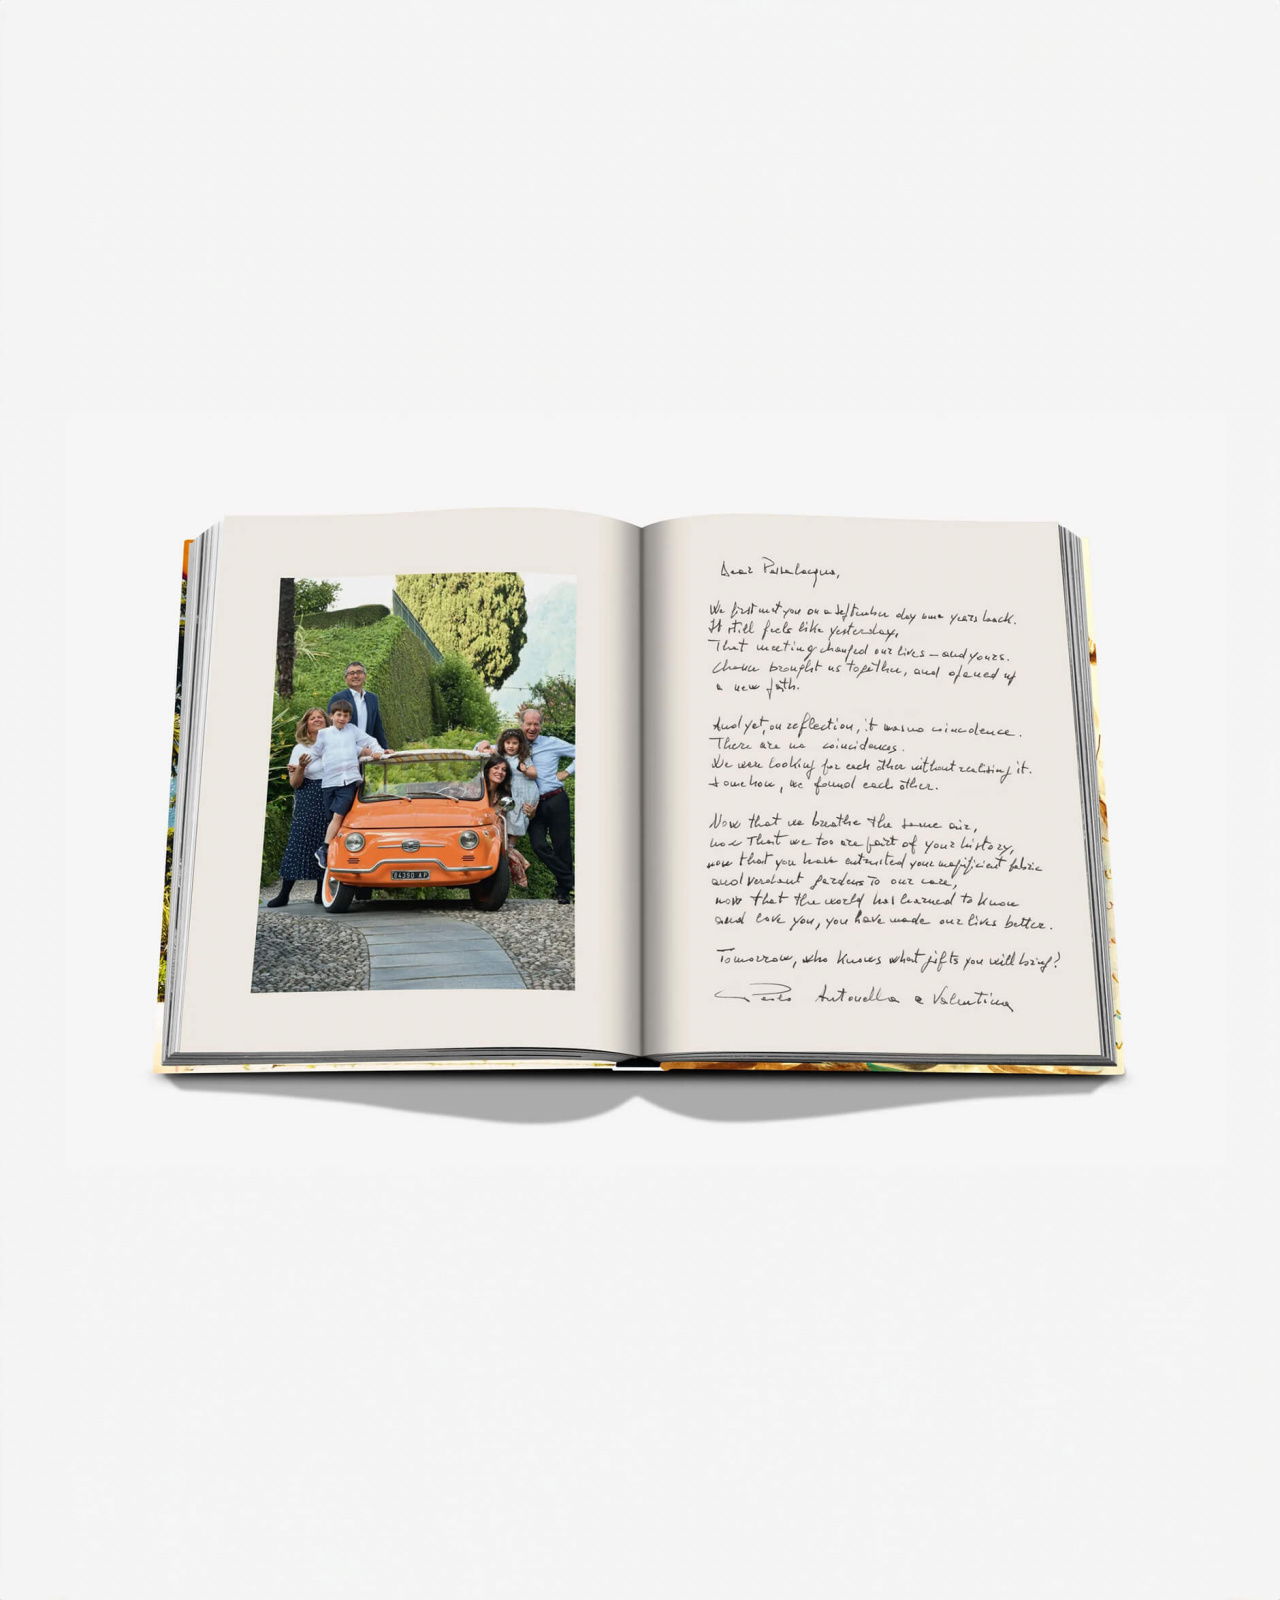 04390 AP
Dear Passalacqua,
We first met you on a September day some years back.
It still feels like yesterday.
That meeting changed our lives – and yours.
Chance brought us together, and opened up
a new path.
And yet, on reflection, it was no coincidence.
There are no coincidences.
We were looking for each other without realising it.
Somehow, we found each other.
Now that we breathe the same air,
now that we too are part of your history,
now that you have entrusted your magnificent fabric
and verdant gardens to our care,
now that the world has learned to know
and love you, you have made our lives better.
Tomorrow, who knows what gifts you will bring?
Paolo Antonella e Valentina